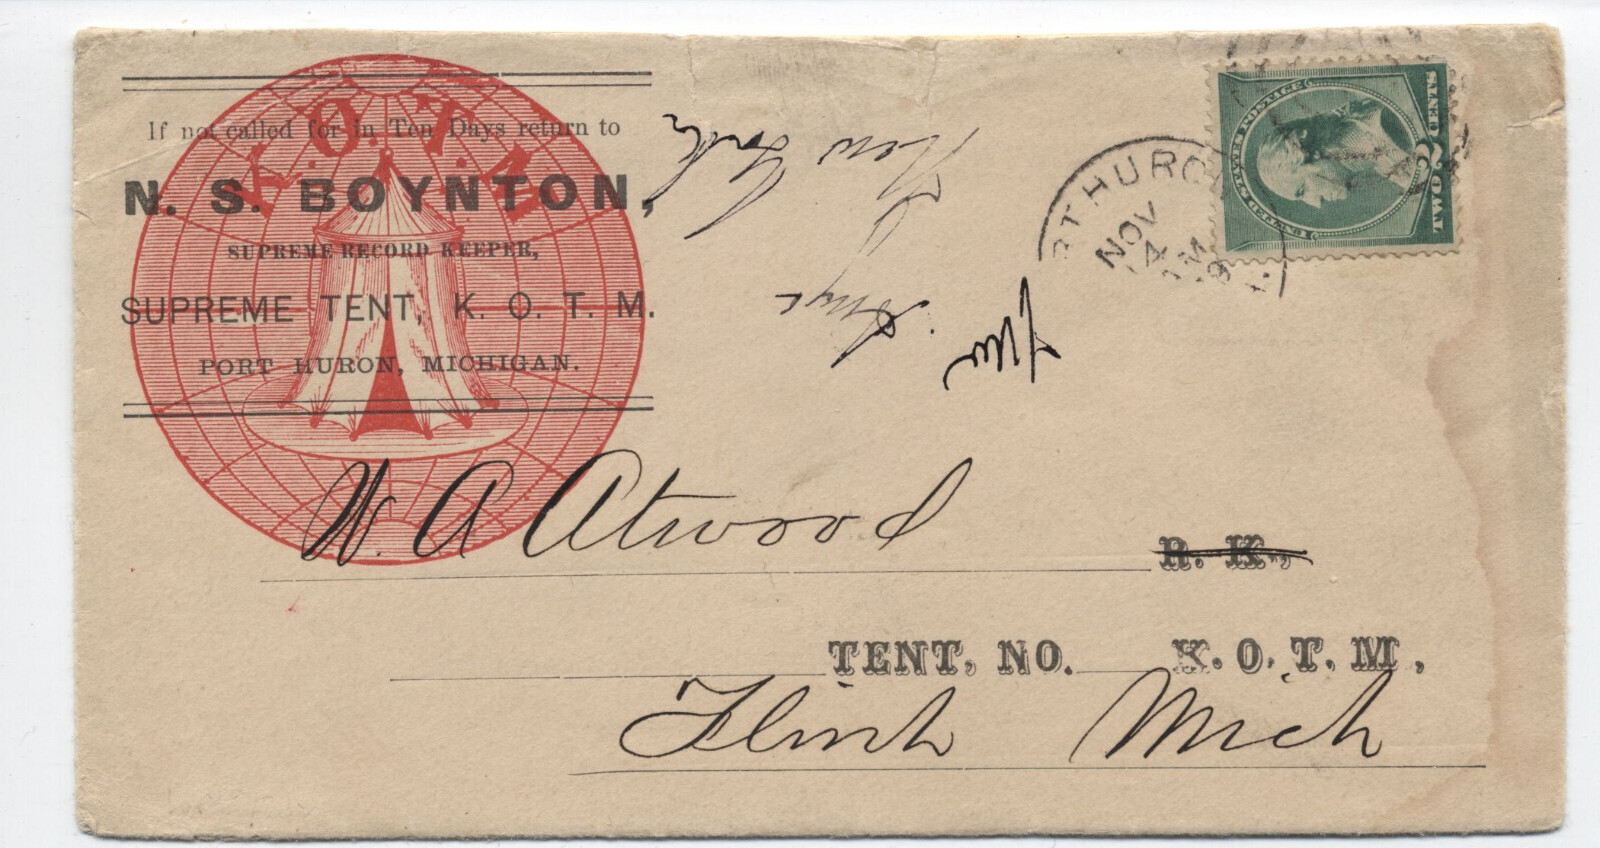 K. O. T. M.
If not called for in Ten Days return to
N. S. BOYNTON,
SUPREME RECORD KEEPER,
SUPREME TENT, K. O. T. M.
PORT HURON, MICHIGAN.
New York
RT HURO
NOV
4
AM
UNITED STATES POSTAGE
TWO 2 CENTS
W. A Atwood R. K.,
TENT, NO. K. O. T. M,
Flint Mich